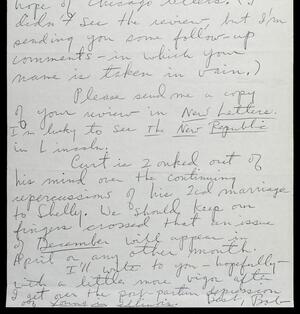 hope of Chicago letters. (I
didn't see the review, but I'm
sending you some follow-up
comments - in which your
name is taken in vain.)
Please send me a copy
of your review in New Letters.
I'm lucky to see The New Republic
in Lincoln.
Curt is zonked out of
his mind over the continuing
repercussions of his 2nd marriage
to Shelly. We should keep our
fingers crossed that an issue
of December will appear in
April or any other month.
I'll write to you - hopefully -
with a little more vigor after
I get over the post-partum depression
Best, Bob